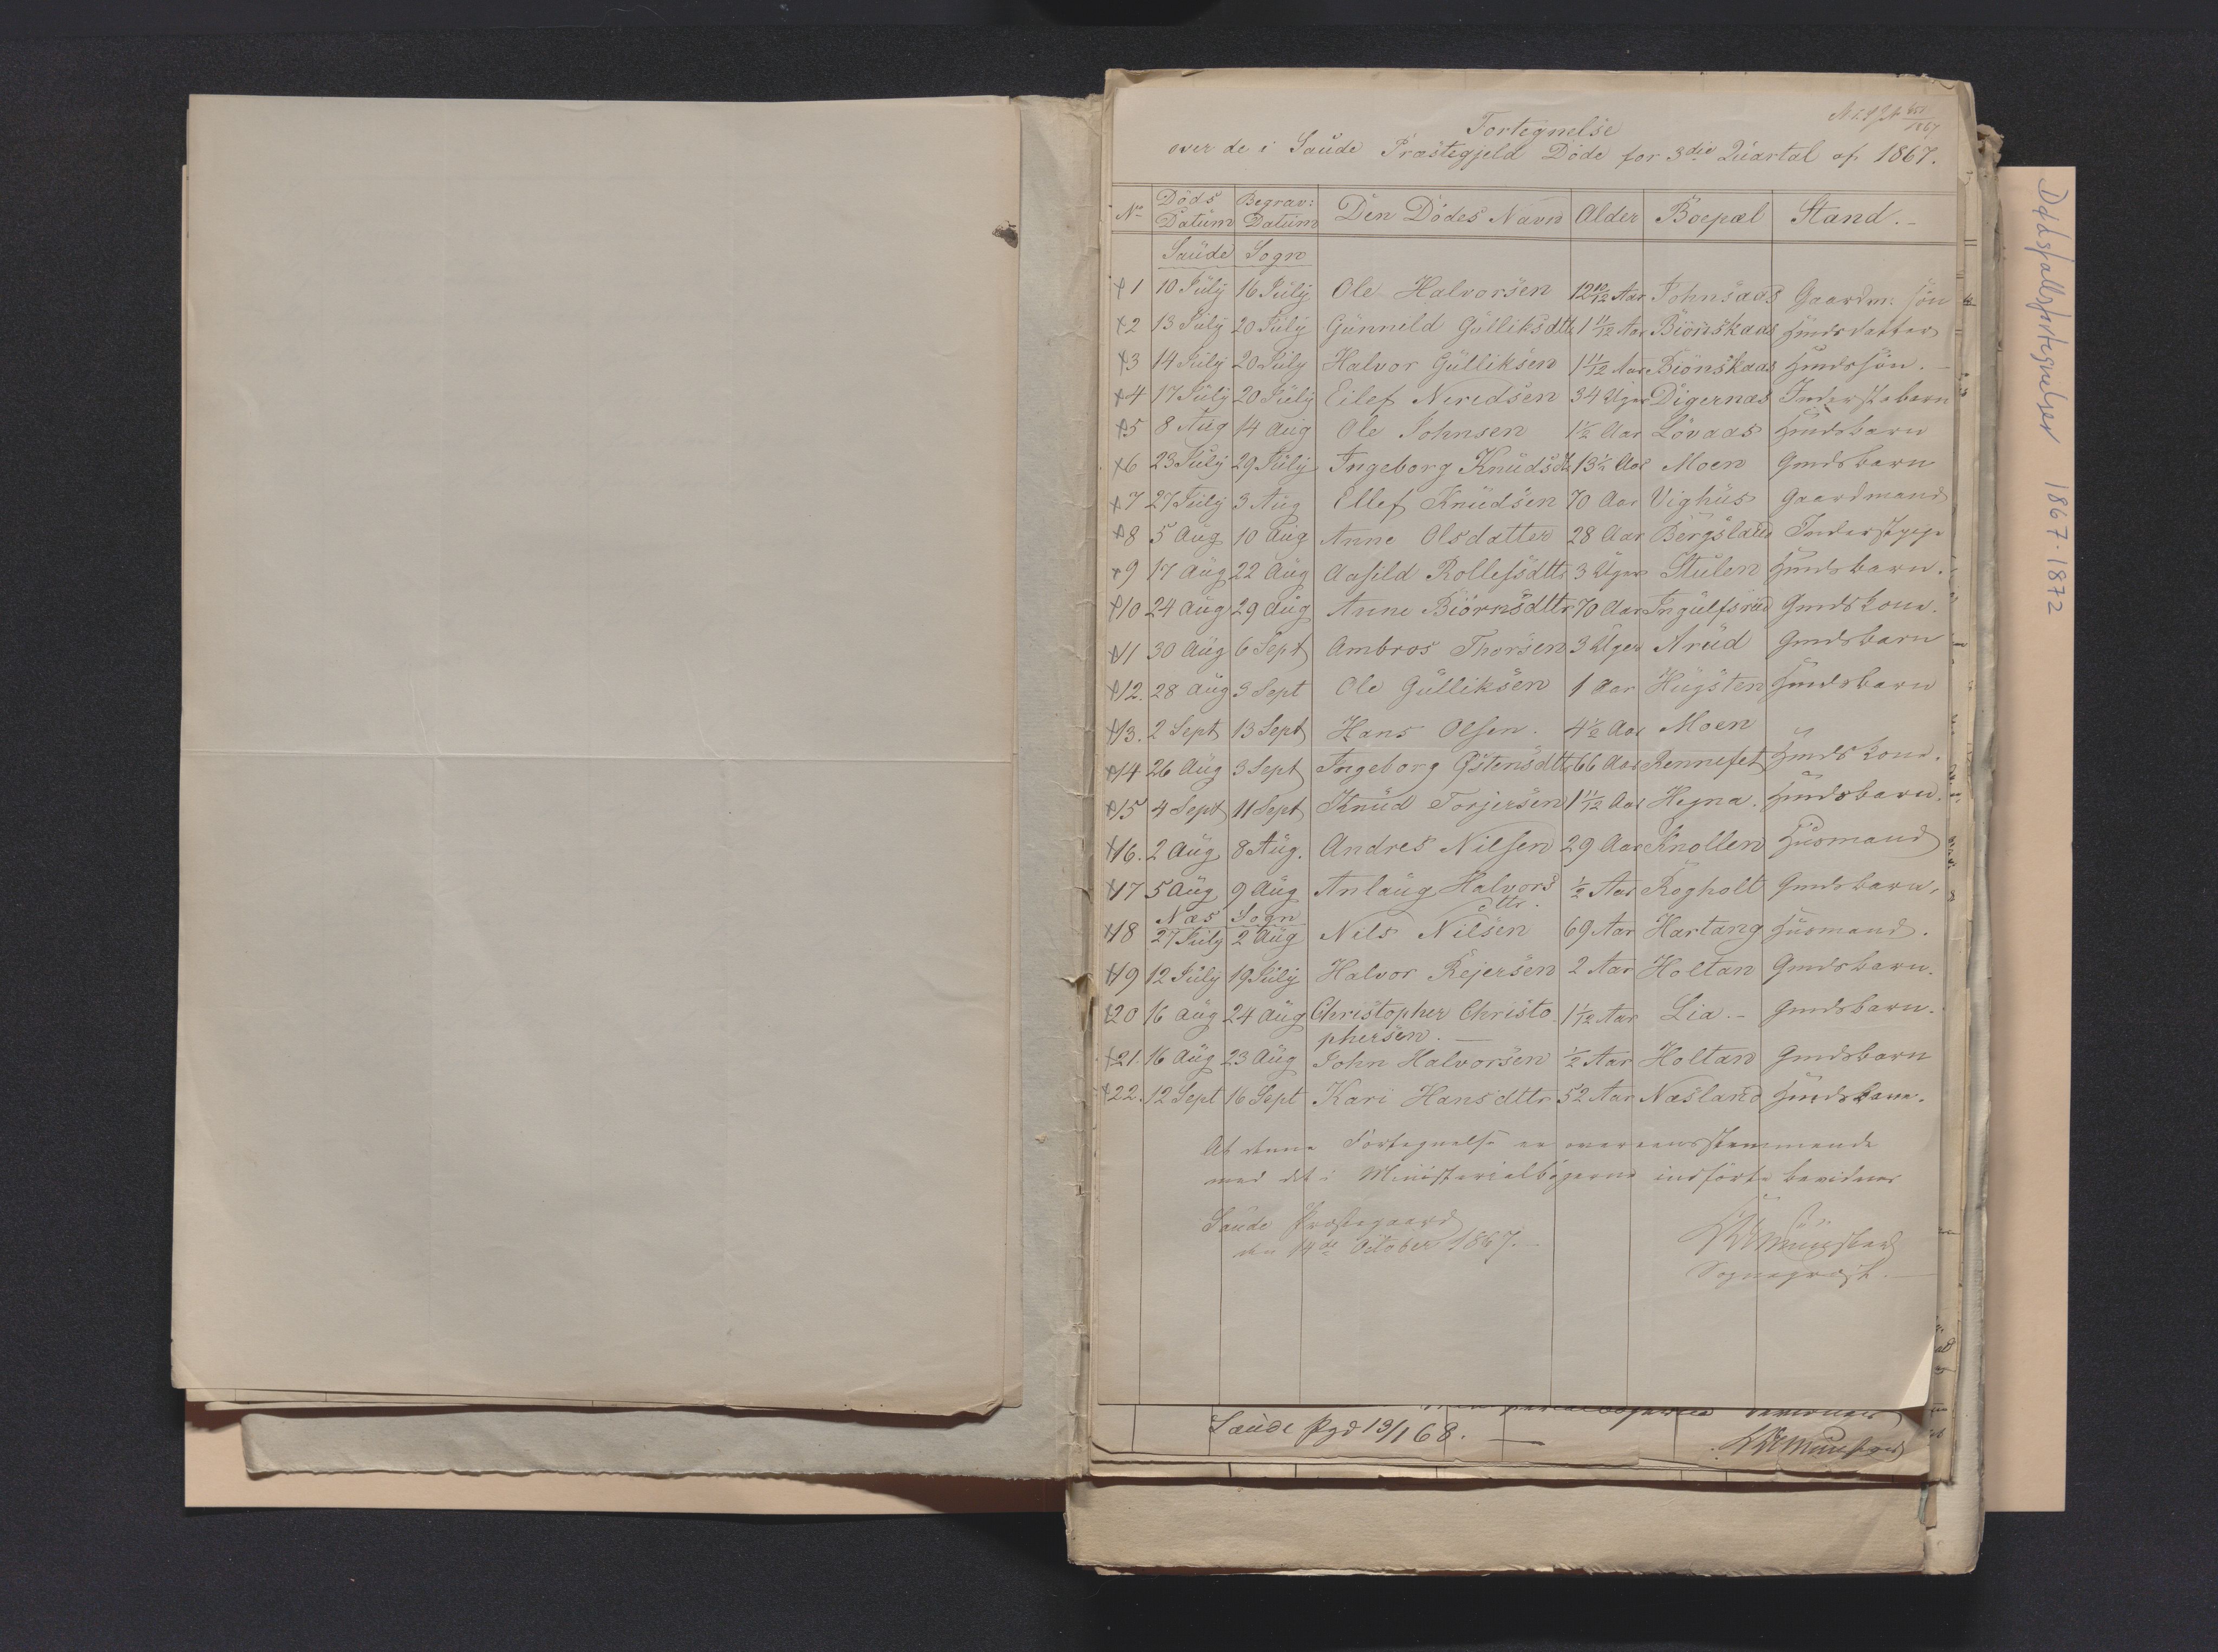 Fortegnelse
over de i Saude Præstegjeld Døde for 3die Quartal af 1867.
No Døds Datum Begrav: Datum Den Dødes Navn Alder Boepæl Stand.
Saude Sogn
1 10 July 16 July Ole Halvorsen 12 10/12 Aar Johnsaas Gaardm: søn
2 13 July 20 July Gunnild Gulliksdttr 1 11/12 Aar Biönskaas Husmdsdatter
3 14 July 20 July Halvor Gulliksen 1 11/12 Aar Biönskaas Hmdssøn.
4 17 July 20 July Eilef Neridsen 34 Uger Digernæs Inderstebarn
5 8 Aug 14 Aug Ole Johnsen 1½ Aar Lövaas Hmdsbarn
6 23 July 29 July Ingeborg Knudsdtr 13½ Aar Moen Gmdsbarn
7 27 July 3 Aug Ellef Knudsen 70 Aar Vighus Gaardmand
8 5 Aug 10 Aug Anne Olsdatter 28 Aar Bergsland Inderstpige
9 17 Aug 22 Aug Aasild Rollefsdttr 3 Uger Stulen Hmdsbarn.
10 24 Aug 29 Aug Anne Biörnsdttr 70 Aar Ingulfsrud Gmdskone.
11 30 Aug 6 Sept Ambros Thorsen 3 Uger Arud Gmdsbarn
12. 28 Aug 3 Sept Ole Gulliksen 1 Aar Hugsten Hmdsbarn
13. 2 Sept 13 Sept Hans Olsen. 4½ Aar Moen
14 26 Aug 3 Sept Ingeborg Östensdttr 66 Aar Rennefet Hmdskone.
15 4 Sept 11 Sept Knud Torjersen 1 11/12 Aar Hegna. Hmdsbarn.
16. 2 Aug 8 Aug. Andres Nilsen 29 Aar Knollen Husmand
17 5 Aug 9 Aug Anlaug Halvorsdttr. ½ Aar Rogholt Gmdsbarn.
Næs Sogn
18 27 July 2 Aug Nils Nilsen 69 Aar Hartang Husmand.
19 12 July 19 July Halvor Rejersen 2 Aar Holtan Gmdsbarn.
20 16 Aug 24 Aug Christopher Christo 1 1/12 Aar Lia.- Gmdsbarn.
phersen.
21. 16 Aug 23 Aug John Halvorsen ½ Aar Holtan Gmdsbarn
22. 12 Sept 16 Sept Kari Hansdttr 52 Aar Næsland Hmdskone.
At denne Fortegnelse er overeensstemmende
med det i Ministerialbøgerne indførte bevidnes
Saude Præstegaard
den 14de October 1867.
Münster
Sognepræst.
Saude Pgd 13/1 68.
bevidnes
Münster
Dødsfallsfortegnelser 1867-1872